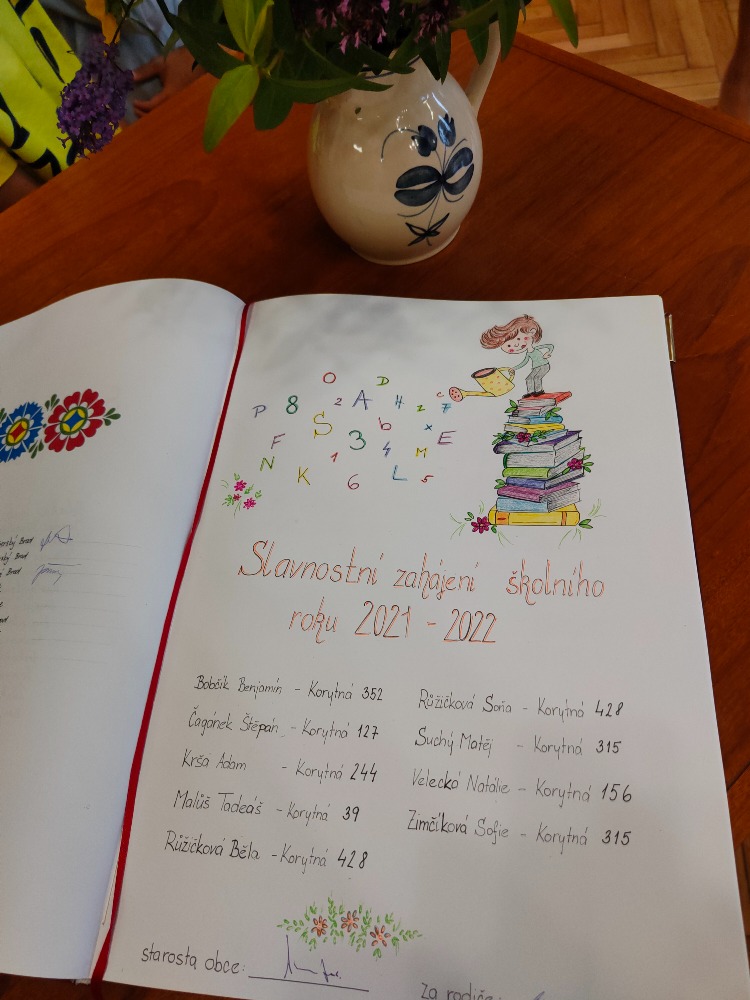 Slavnostní zahájení školního
roku 2021 - 2022
Bobčík Benjamín - Korytná 352
Čagánek Štěpán - Korytná 127
Krša Adam - Korytná 244
Malůš Tadeáš - Korytná 39
Růžičková Běla - Korytná 428
Růžičková Soňa - Korytná 428
Suchý Matěj - Korytná 315
Velecká Natálie - Korytná 156
Zimčíková Sofie - Korytná 315
starosta obce:
za rodiče